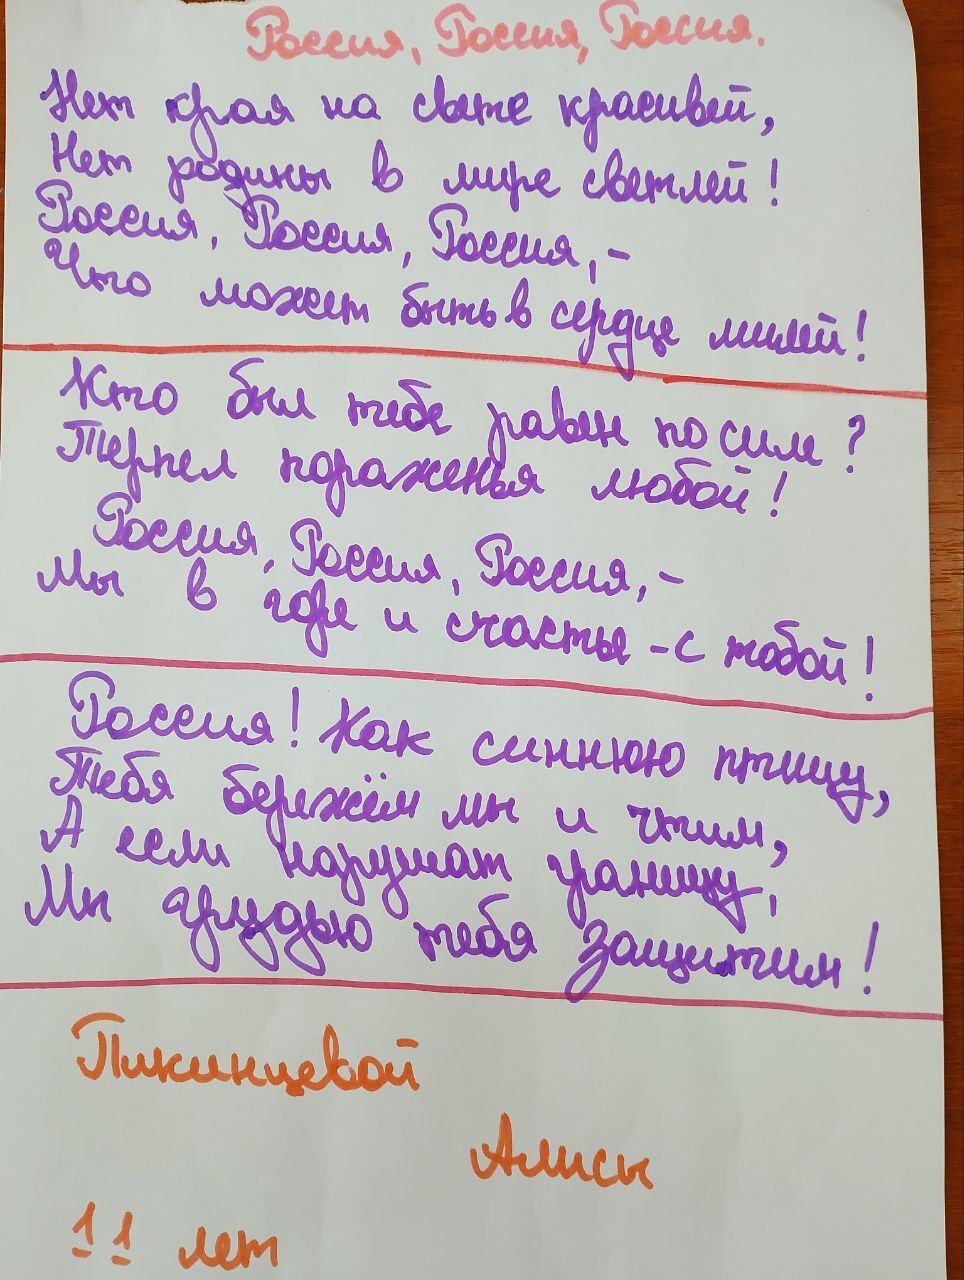 Россия, Россия, Россия.
Нет края на свете красивей,
Нет родины в мире светлей!
Россия, Россия, Россия,-
Что может быть в сердце милей!
Кто был тебе равен по силе?
Терпел пораженья любой!
Россия, Россия, Россия,-
Мы в горе и счастье -с тобой!
Россия! Как синнюю птицу,
Тебя бережём мы и чтим,
А если нарушат границу,
Мы грудью тебя защитим!
Пикинцевой
Алисы
11 лет